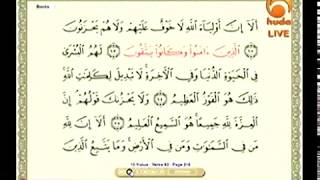 Books
huda
LIVE
أَلَآ إِنَّ أَوْلِيَآءَ ٱللَّهِ لَا خَوْفٌ عَلَيْهِمْ وَلَا هُمْ يَحْزَنُونَ
﴿٦٢﴾ ٱلَّذِينَ ءَامَنُوا۟ وَكَانُوا۟ يَتَّقُونَ ﴿٦٣﴾ لَهُمُ ٱلْبُشْرَىٰ
فِى ٱلْحَيَوٰةِ ٱلدُّنْيَا وَفِى ٱلْءَاخِرَةِ لَا تَبْدِيلَ لِكَلِمَـٰتِ ٱللَّهِ
ذَٰلِكَ هُوَ ٱلْفَوْزُ ٱلْعَظِيمُ ﴿٦٤﴾ وَلَا يَحْزُنكَ قَوْلُهُمْ إِنَّ
ٱلْعِزَّةَ لِلَّهِ جَمِيعًا هُوَ ٱلسَّمِيعُ ٱلْعَلِيمُ ﴿٦٥﴾ أَلَآ إِنَّ لِلَّهِ
مَن فِى ٱلسَّمَـٰوَٰتِ وَمَن فِى ٱلْأَرْضِ وَمَا يَتَّبِعُ ٱلَّذِينَ